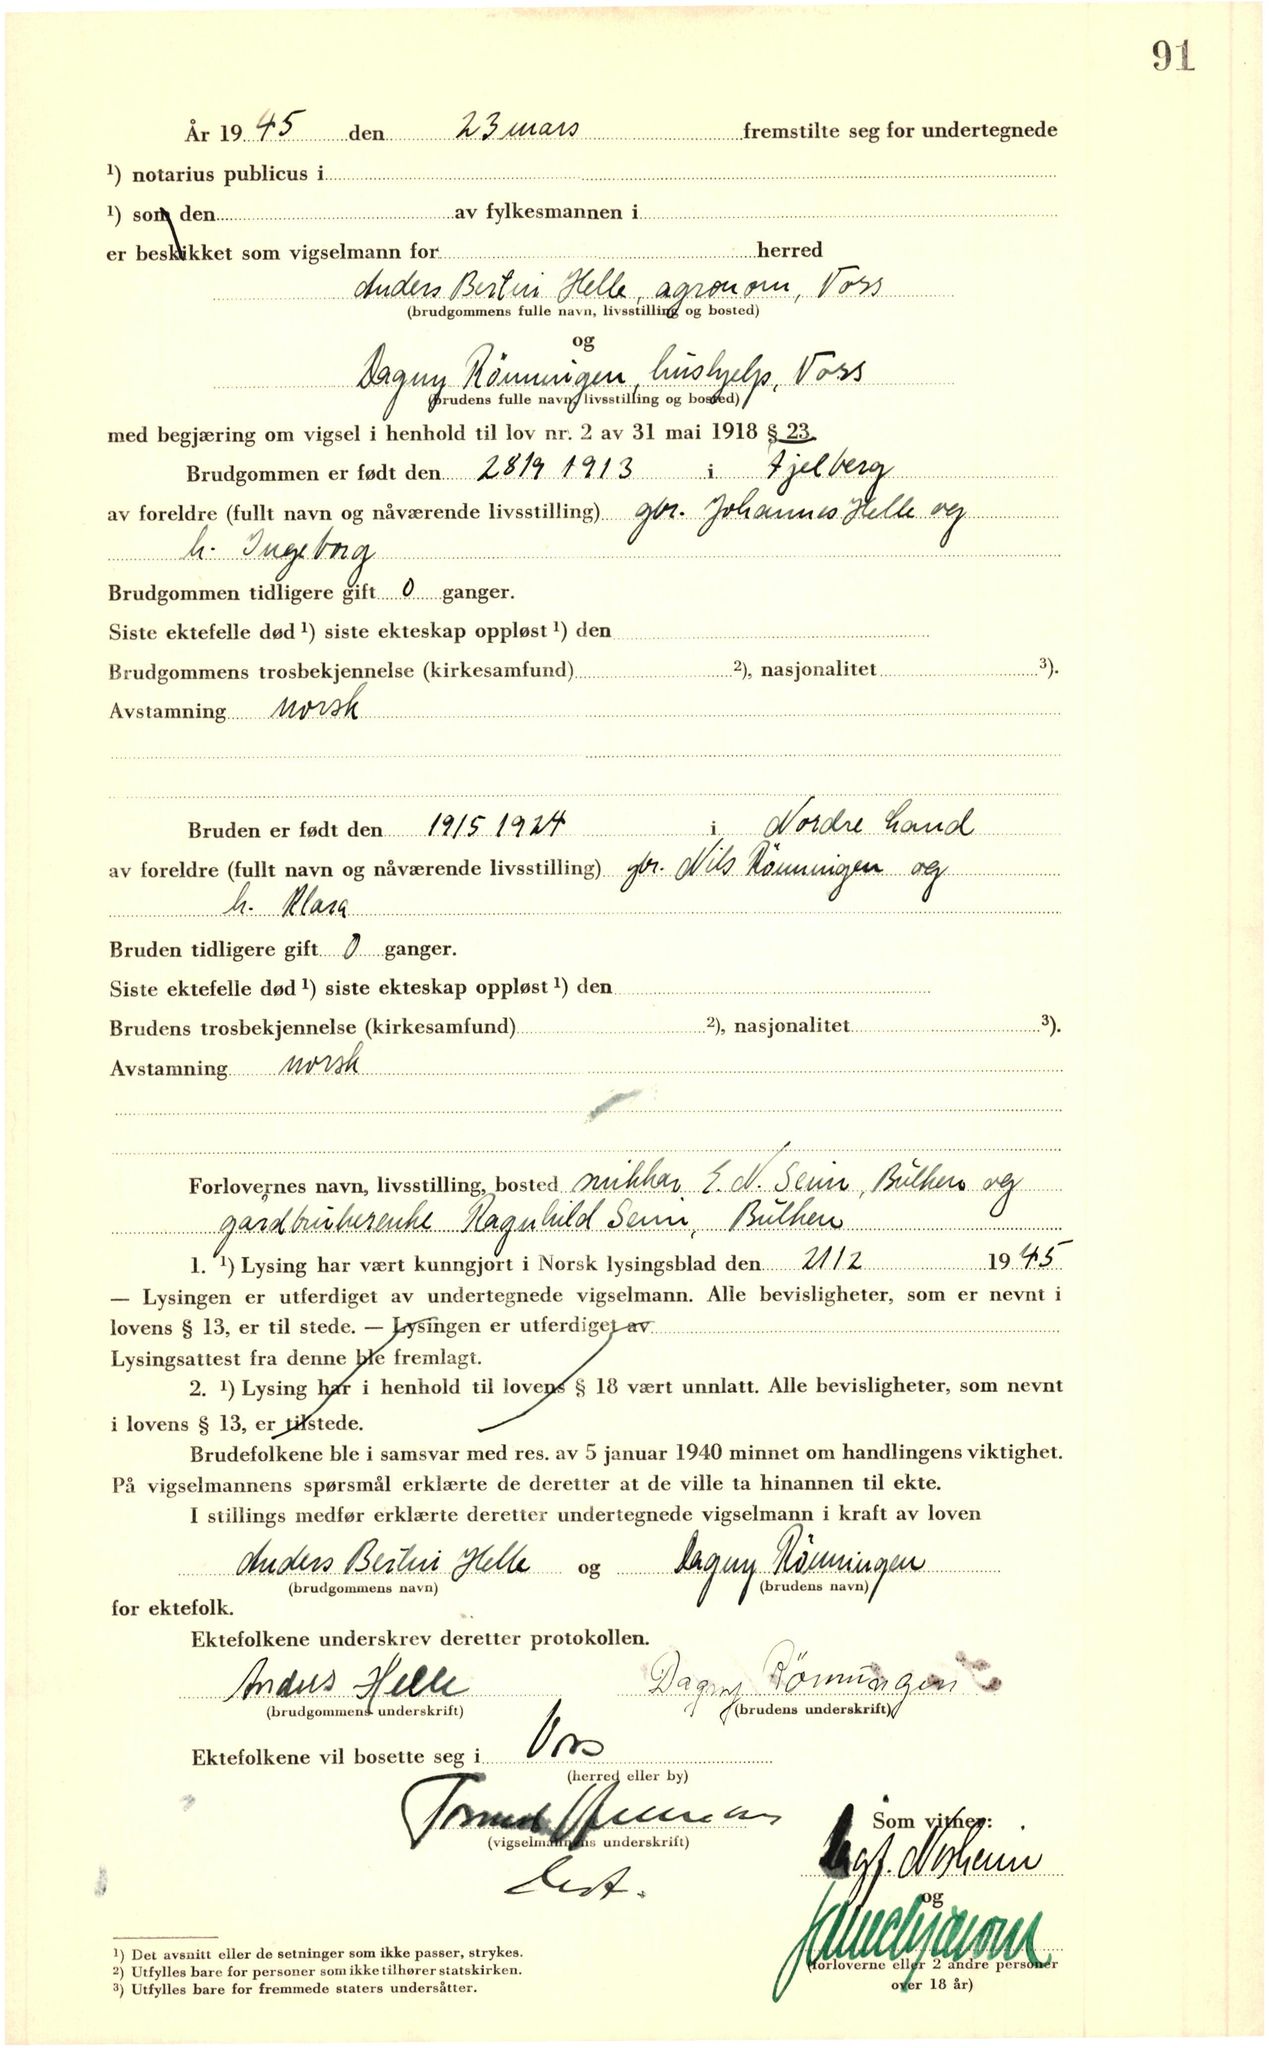 91
År 1945 den 23 mars fremstilte seg for undertegnede
¹) notarius publicus i
¹) som den av fylkesmannen i
er beskikket som vigselmann for herred
Anders Bertin Helle, agronom, Voss
(brudgommens fulle navn, livsstilling og bosted)
og
Dagny Rönningen, hushjelp, Voss
(brudens fulle navn, livsstilling og bosted)
med begjæring om vigsel i henhold til lov nr. 2 av 31 mai 1918 § 23.
Brudgommen er født den 28/9 1913 i Fjelberg
av foreldre (fullt navn og nåværende livsstilling) gbr. Johannes Helle og
h. Ingeborg
Brudgommen tidligere gift 0 ganger.
Siste ektefelle død ¹) siste ekteskap oppløst ¹) den
Brudgommens trosbekjennelse (kirkesamfund) ²), nasjonalitet ³).
Avstamning norsk
Bruden er født den 19/5 1924 i Nordre Land
av foreldre (fullt navn og nåværende livsstilling) gbr. Nils Rönningen og
h. Klara
Bruden tidligere gift 0 ganger.
Siste ektefelle død ¹) siste ekteskap oppløst ¹) den
Brudens trosbekjennelse (kirkesamfund) ²), nasjonalitet ³).
Avstamning norsk
Forlovernes navn, livsstilling, bosted snikkar E. N. Seim, Bulken og
gardbrukerenke Ragnhild Seim, Bulken
1. ¹) Lysing har vært kunngjort i Norsk lysingsblad den 21/2 1945
— Lysingen er utferdiget av undertegnede vigselmann. Alle bevisligheter, som er nevnt i
lovens § 13, er til stede. — Lysingen er utferdiget av
Lysingsattest fra denne ble fremlagt.
2. ¹) Lysing har i henhold til lovens § 18 vært unnlatt. Alle bevisligheter, som nevnt
i lovens § 13, er tilstede.
Brudefolkene ble i samsvar med res. av 5 januar 1940 minnet om handlingens viktighet.
På vigselmannens spørsmål erklærte de deretter at de ville ta hinannen til ekte.
I stillings medfør erklærte deretter undertegnede vigselmann i kraft av loven
Anders Bertin Helle og Dagny Rönningen
(brudgommens navn) (brudens navn)
for ektefolk.
Ektefolkene underskrev deretter protokollen.
Anders Helle Dagny Rönningen
(brudgommens underskrift) (brudens underskrift)
Ektefolkene vil bosette seg i Voss
(herred eller by)
Som vitner:
(vigselmannens underskrift)
og
¹) Det avsnitt eller de setninger som ikke passer, strykes.
²) Utfylles bare for personer som ikke tilhører statskirken.
³) Utfylles bare for fremmede staters undersåtter.
(forloverne eller 2 andre personer
over 18 år)